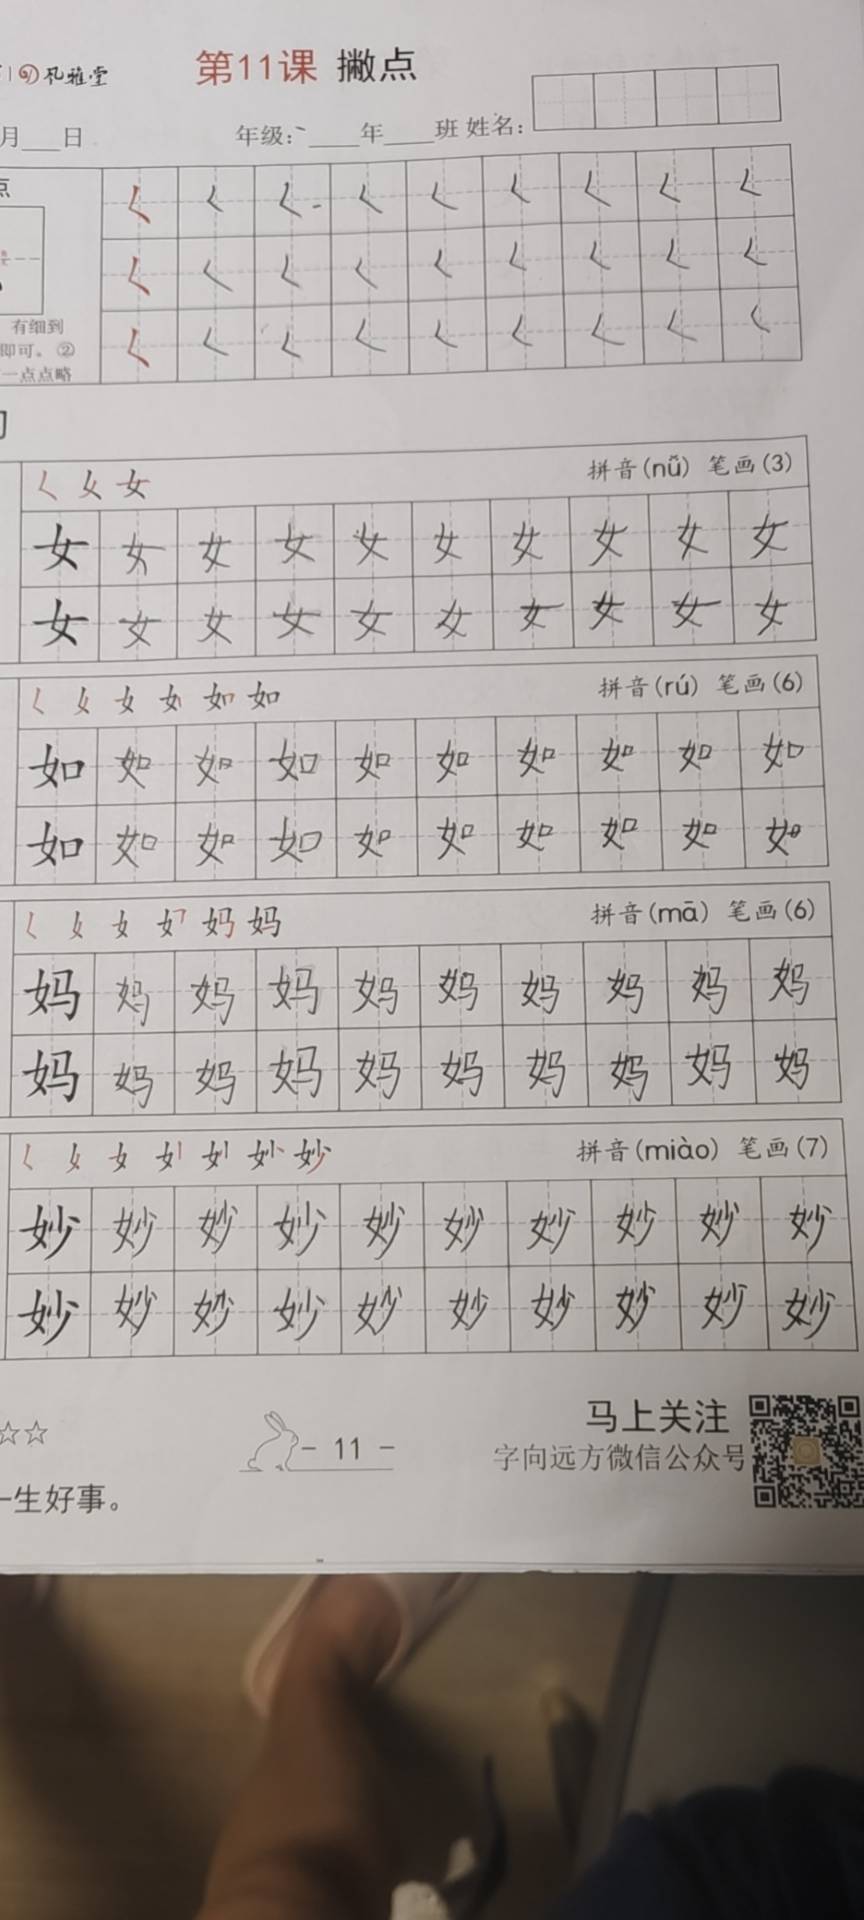 风雅堂
第11课 撇点
月 日 年级: 年 班 姓名:
点
く く く く く く く く く
く く く く く く く く く
有细到
即可。②
一点点略
く く く く く く く く く
女 拼音(nǚ) 笔画(3)
女 女 女 女 女 女 女 女 女 女
女 女 女 女 女 女 女 女 女 女
女 如 拼音(rú) 笔画(6)
如 如 如 如 如 如 如 如 如 如
如 如 如 如 如 如 如 如 如 如
女 妈 拼音(mā) 笔画(6)
妈 妈 妈 妈 妈 妈 妈 妈 妈 妈
妈 妈 妈 妈 妈 妈 妈 妈 妈 妈
女 妙 拼音(miào) 笔画(7)
妙 妙 妙 妙 妙 妙 妙 妙 妙 妙
妙 妙 妙 妙 妙 妙 妙 妙 妙 妙
☆☆
- 11 -
马上关注
字向远方微信公众号
一生好事。